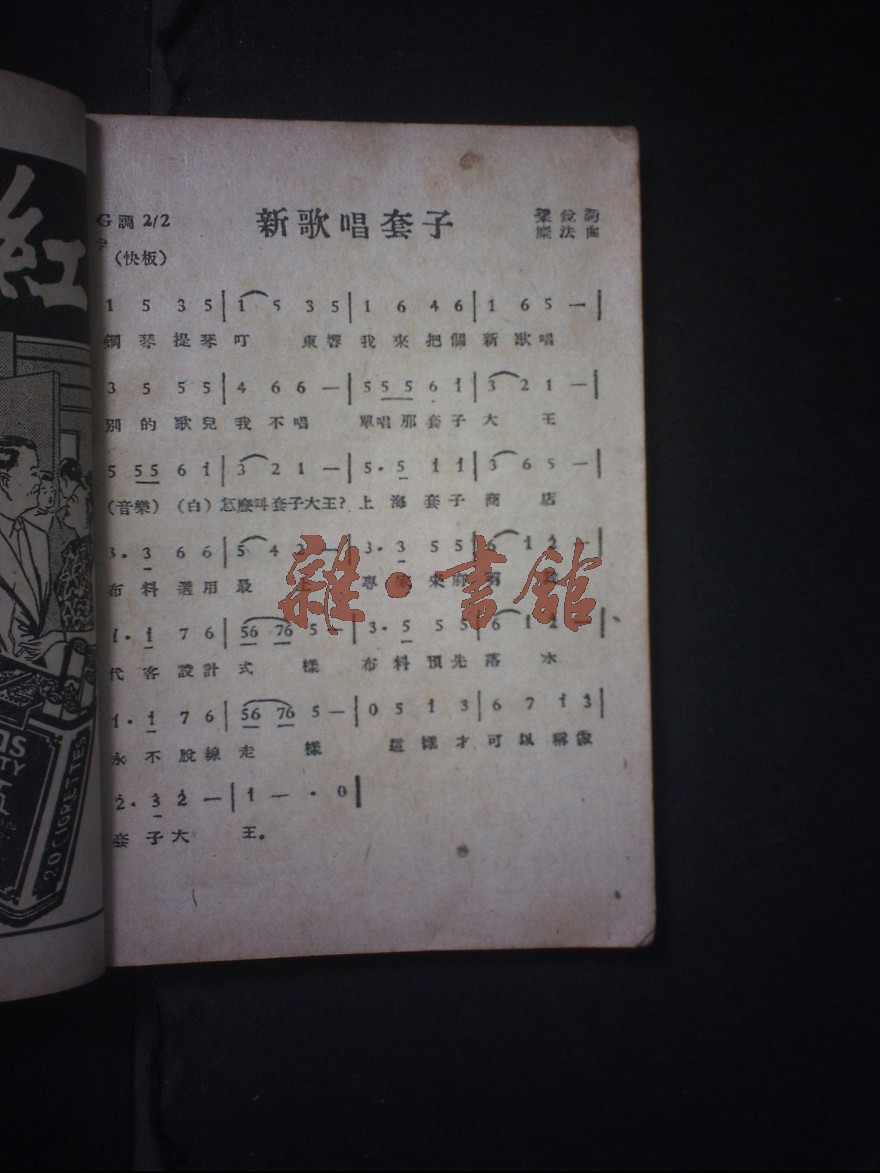 紅
20 CIGRETTES
新歌唱套子
G調 2/2
(快板)
詞
法曲
1 5 3 5 | 1 5 3 5 | 1 6 4 6 | 1 6 5 — |
鋼琴提琴叮 東響我來把個新歌唱
3 5 5 5 | 4 6 6 — | 5 5 5 6 i | 3 2 1 — |
別的歌兒我不唱 單唱那套子大王
5 5 5 6 i | 3 2 1 — | 5 · 5 i i | 3 6 5 — |
(音樂) (白) 怎麼叫套子大王? 上海套子商店
3 · 3 6 6 | 5 4 2 — | 3 · 3 5 5 | 6 i 2 — |
布料選用最 專 來
雜·書館
i · i 7 6 | 56 76 5 — | 3 · 5 5 5 | 6 i 2 — |
代客設計式樣 布料預先落水
i · i 7 6 | 56 76 5 — | 0 5 i 3 | 6 7 i 3 |
永不脫線走樣 這樣才可以稱做
2 · 3 2 — | i — · 0 |
套子大王。